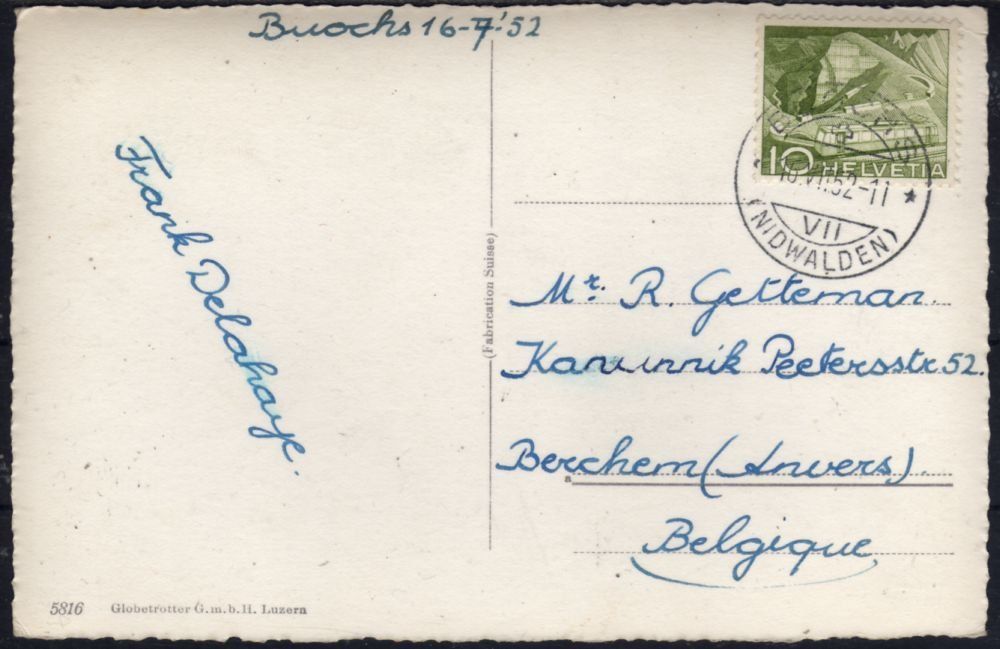 Buochs 16-7-'52
10 HELVETIA
16.VII.52-11
VII
(NIDWALDEN)
Frank Delahaye.
(Fabrication Suisse)
Mr. R. Getteman.
Kanunnik Peetersstr 52.
Berchem (Anvers).
a
Belgique
5816 Globetrotter G.m.b.H. Luzern